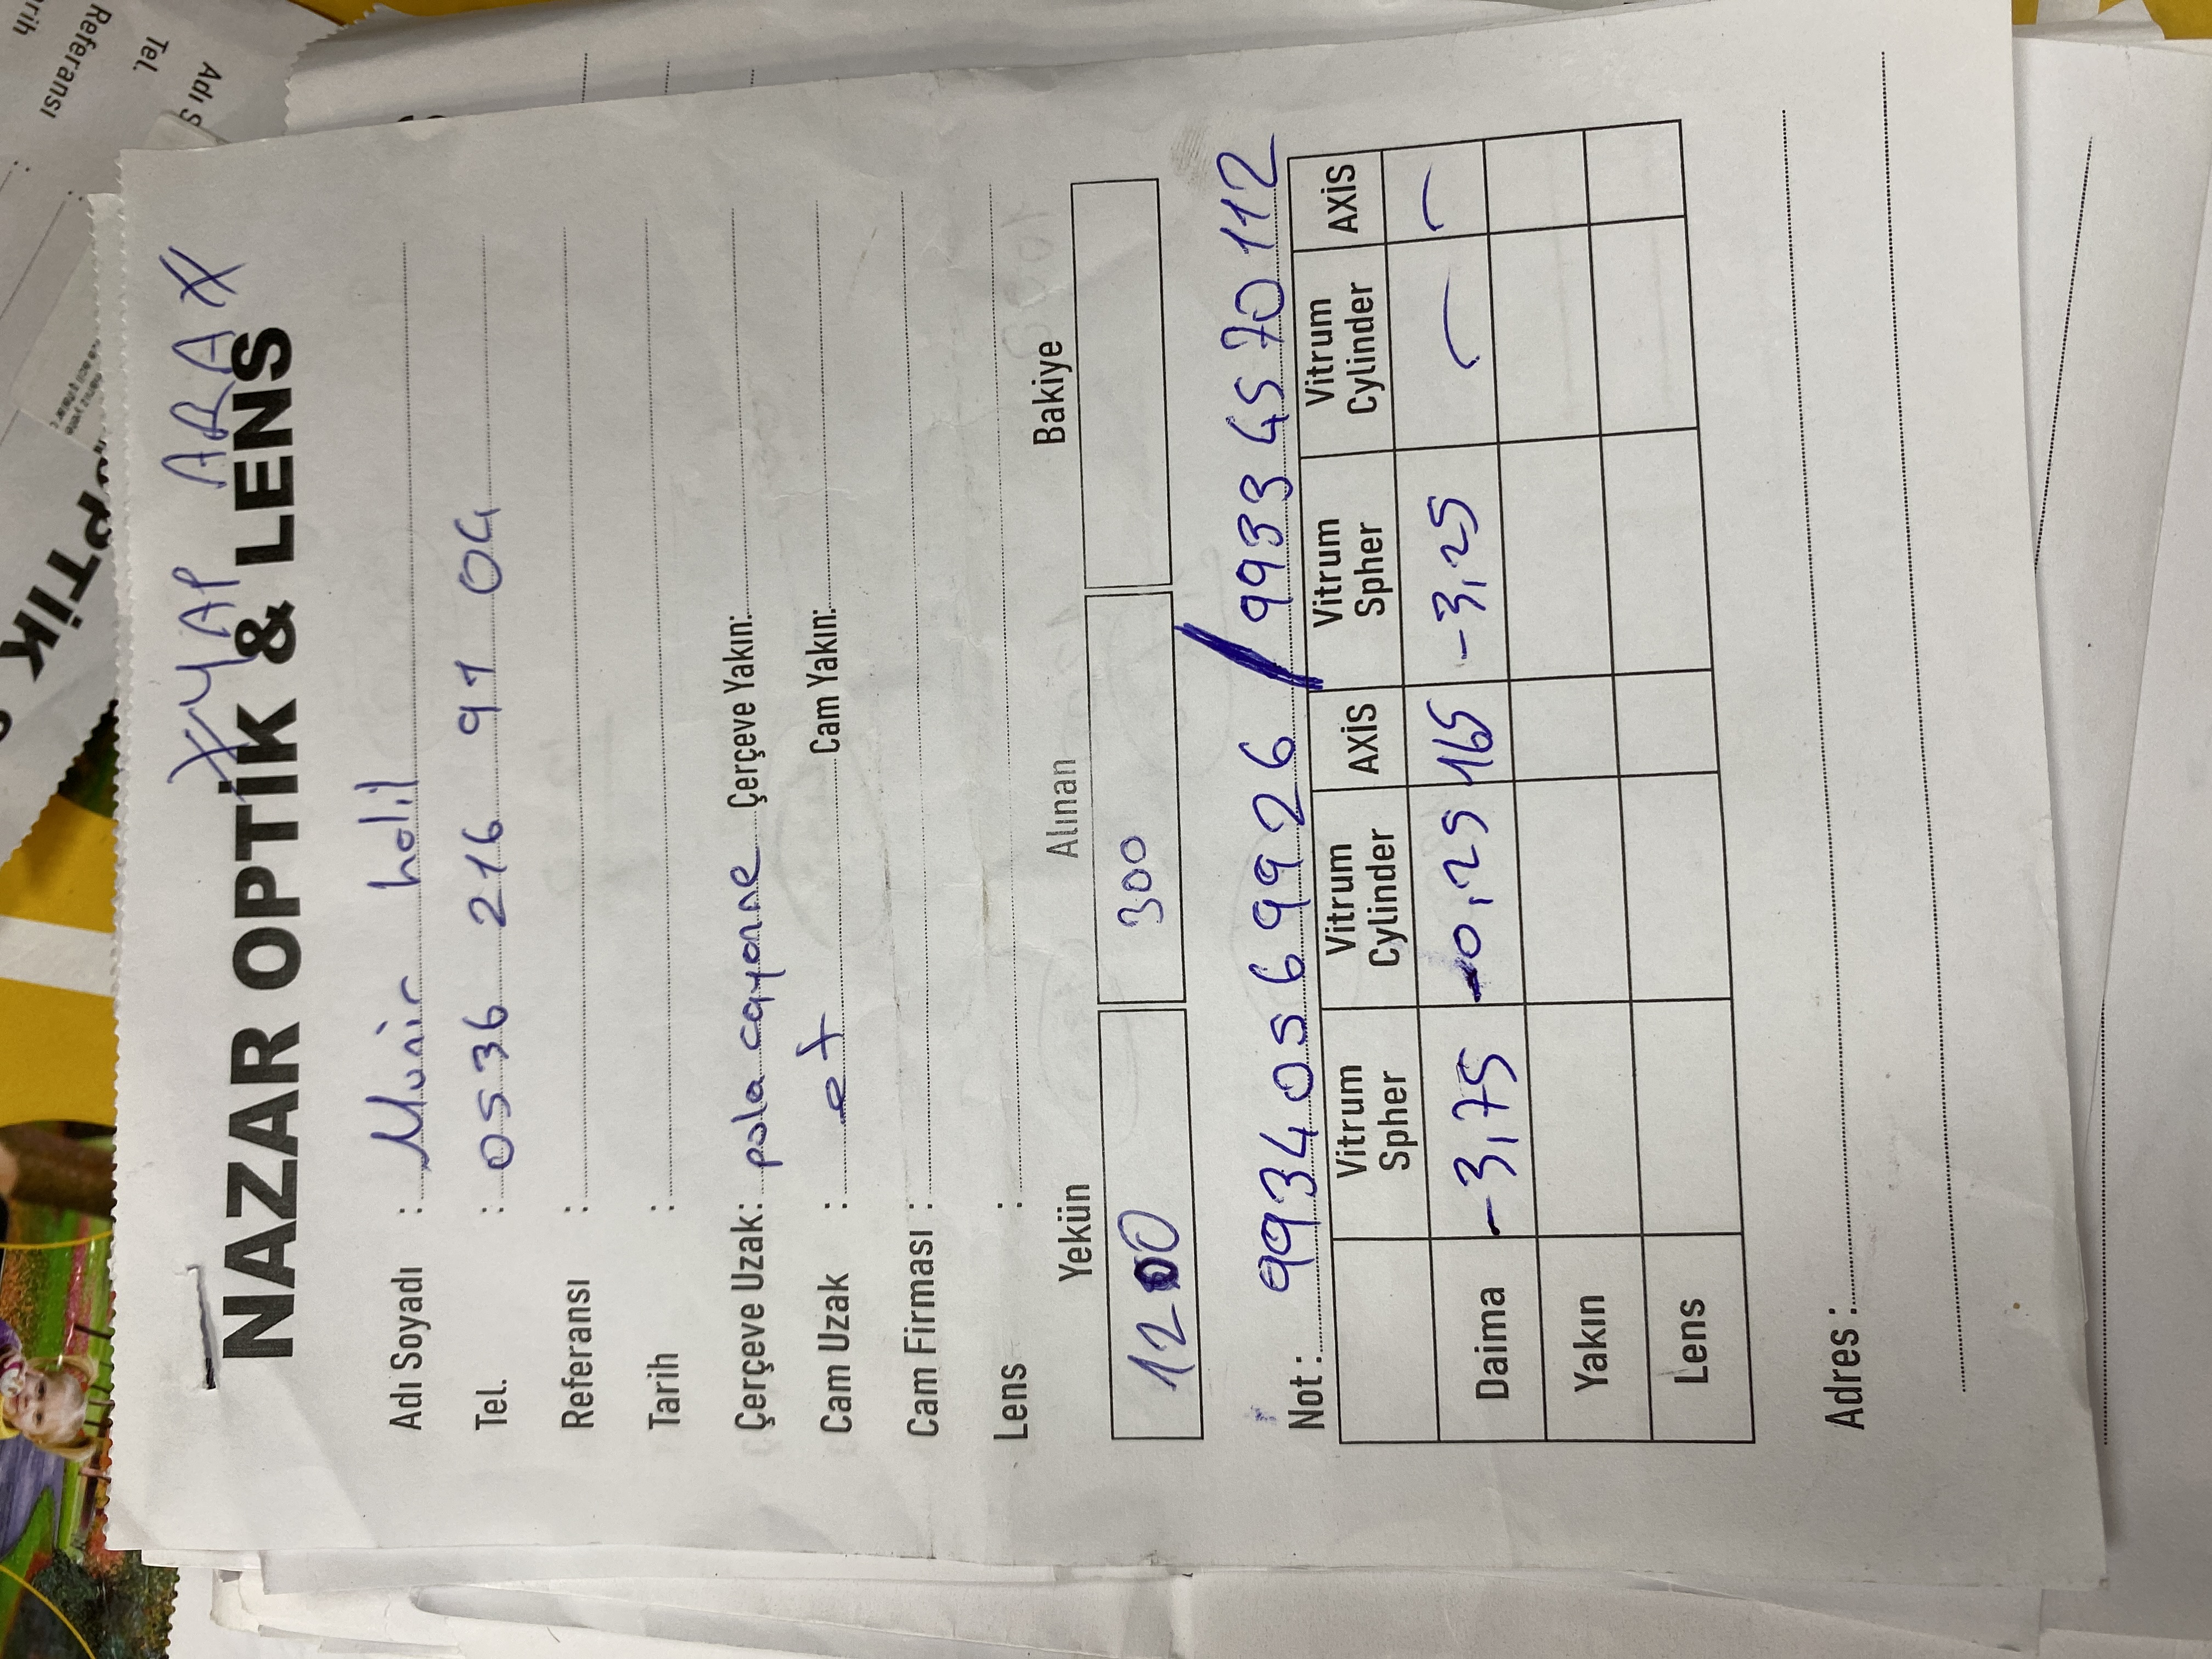 *YAP ARA*
NAZAR OPTİK & LENS
Adı Soyadı : Munir halil
Tel. : 0536 216 91 04
Referansı :
Tarih :
Çerçeve Uzak: pola cayenne Çerçeve Yakın:
Cam Uzak : Cam Yakın:
Cam Firması :
Lens :
Yekün Alınan Bakiye
1200 300
Not : 99340569926 / 99334570112
Vitrum Spher Vitrum Cylinder AXİS Vitrum Spher Vitrum Cylinder AXİS
Daima -3,75 -0,25 165 -3,25 — —
Yakın
Lens
Adres :
PTİK &
Referansı
Tel.
Adı S